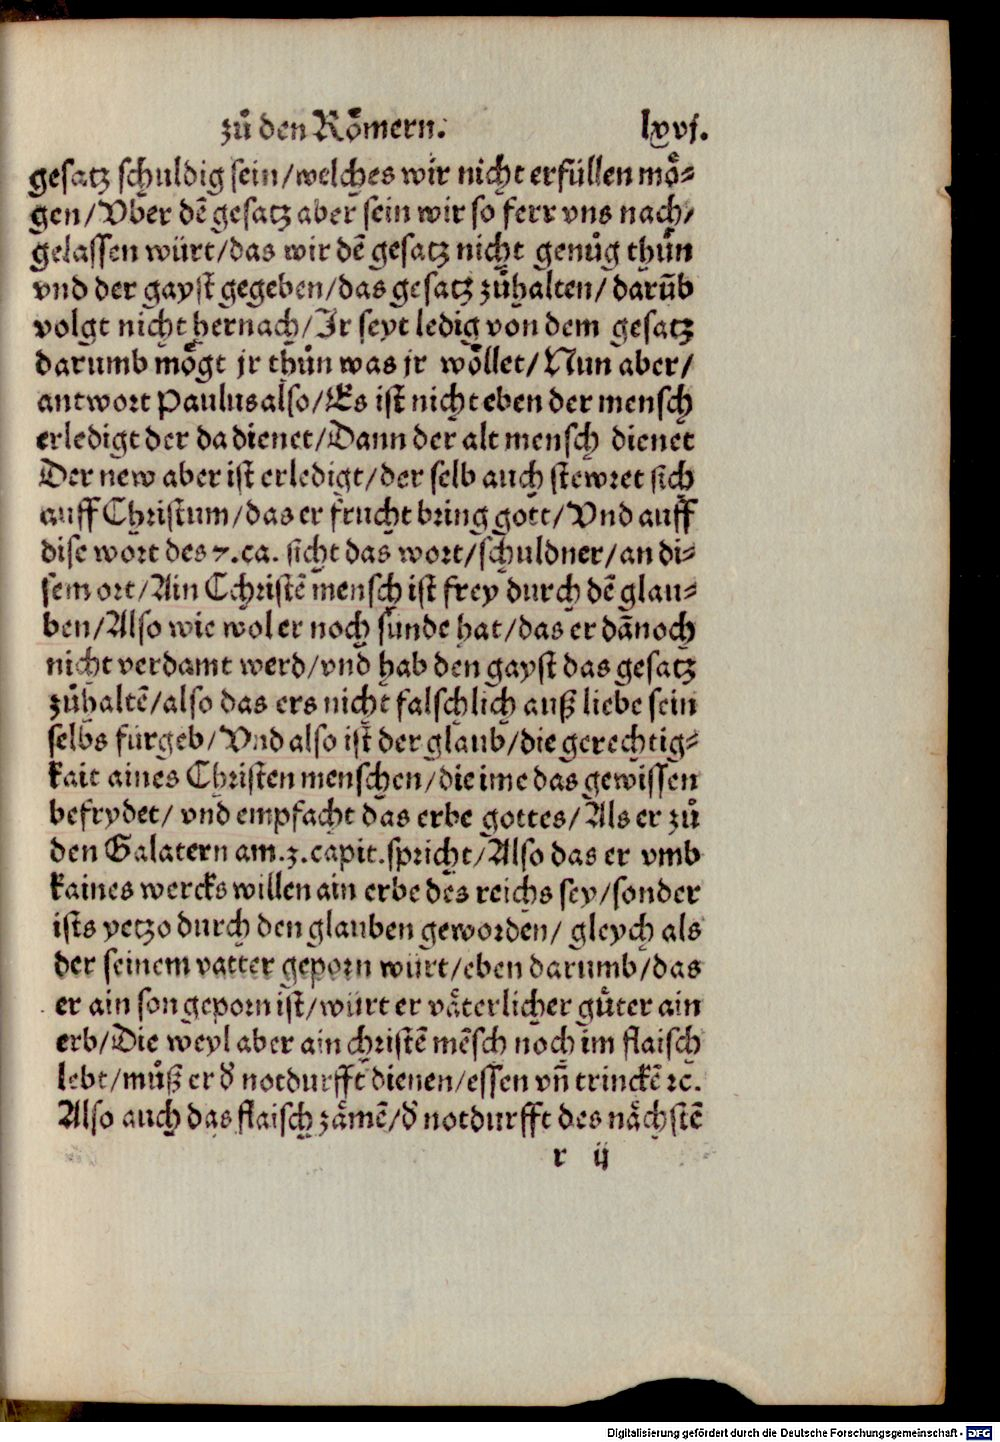 zů den Roͤmern. lxvj.
gesatz schuldig sein/welches wir nicht erfüllen moͤ⸗
gen/Vber dē gesatz aber sein wir so ferr vns nach/
gelassen würt/das wir dē gesatz nicht genůg thůn
vnd der gayst gegeben/das gesatz zůhalten/darūb
volgt nicht hernach/Ir seyt ledig von dem gesatz
darumb moͤgt jr thůn was jr woͤllet/Nun aber/
antwort Paulus also/Es ist nicht eben der mensch
erledigt der da dienet/Dann der alt mensch dienet
Der new aber ist erledigt/der selb auch stewret sich
auff Christum/das er frucht bring gott/Vnd auff
dise wort des 7.ca. sicht das wort/schuldner/an di⸗
sem ort/Ain Cchristē mensch ist frey durch dē glau⸗
ben/Also wie wol er noch sünde hat/das er dānoch
nicht verdamt werd/vnd hab den gayst das gesatz
zůhaltē/also das ers nicht falschlich auß liebe sein
selbs fürgeb/Vnd also ist der glaub/die gerechtig⸗
kait aines Christen menschen/die ime das gewissen
befrydet/ vnd empfacht das erbe gottes/Als er zů
den Galatern am.3.capit.spricht/Also das er vmb
kaines wercks willen ain erbe des reichs sey/sonder
ists yetzo durch den glauben geworden/ gleych als
der seinem vatter geporn würt/eben darumb/das
er ain son geporn ist/würt er vaͤterlicher guͤter ain
erb/Die weyl aber ain christē mēsch noch im flaisch
lebt/můß er d̄ notdurfft dienen/essen vn̄ trinckē ꝛc.
Also auch das flaisch zaͤmē/d̄ notdurfft des naͤchstē
r ij
Digitalisierung gefördert durch die Deutsche Forschungsgemeinschaft - DFG